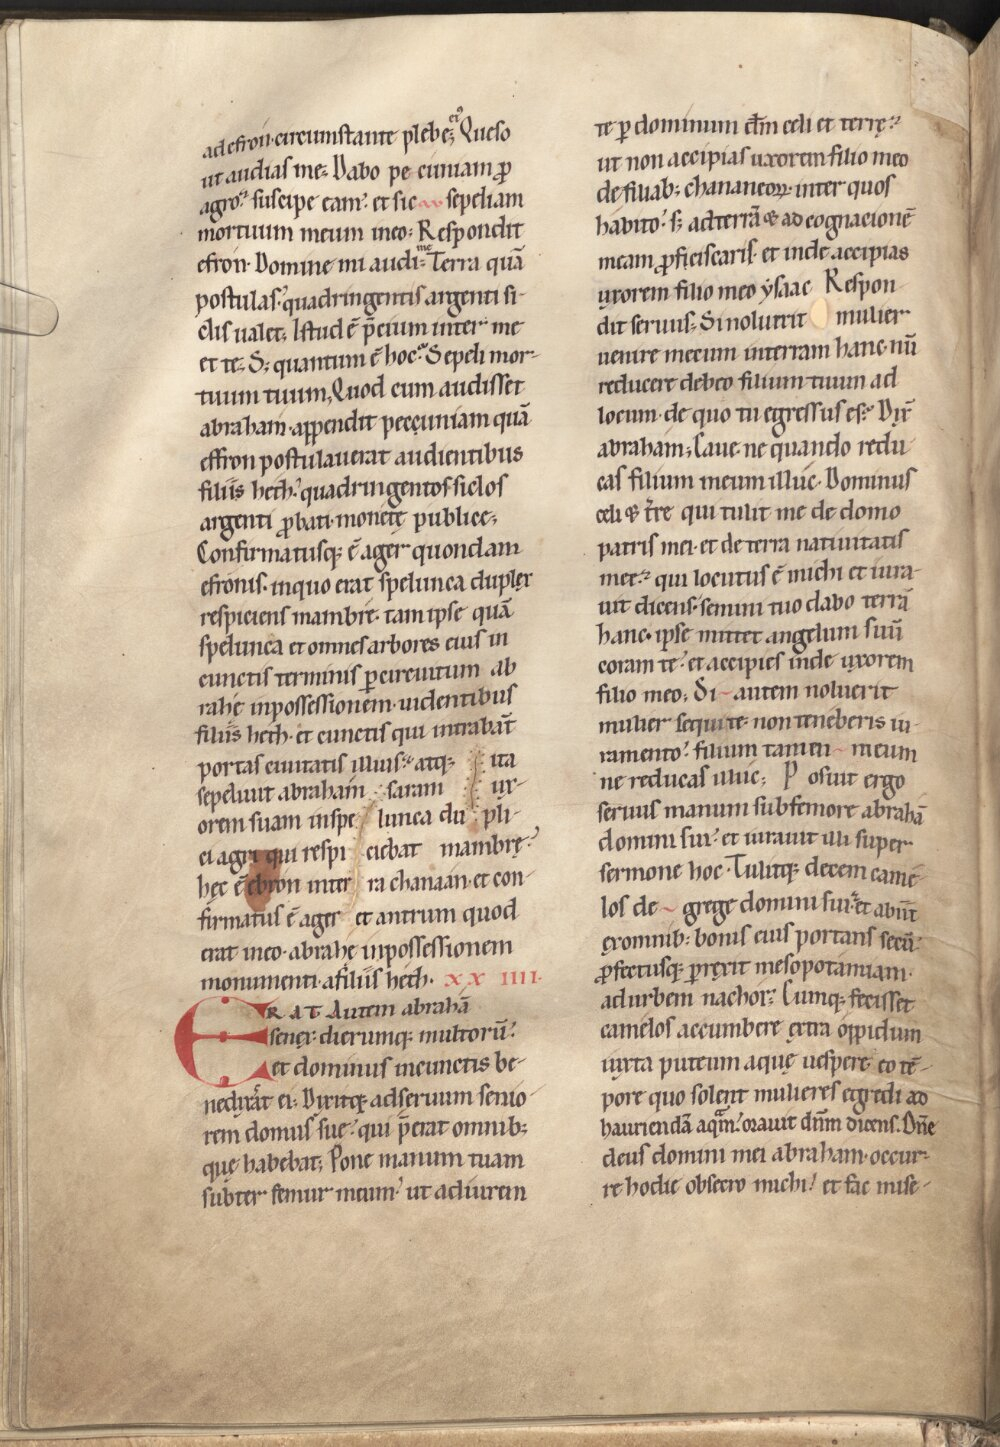 ad efron· circumstante plebe; ei᷒ Queso
ut audias me; Dabo pecuniam ꝓ
agro. suscipe eam. et sic sepeliam
mortuum meum in eo; Respondit
efron· Domine mi audi me; Terra quā
postulas. quadringentis argenti si-
clis ualet; Istud ē p̄cium inter me
et te; S; quantum ē hoc. Sepeli mor-
tuum tuum; Quod cum audisset
abraham· appendit pecuniam quā
effron postulauerat audientibus
filiis heth. quadringentos siclos
argenti ꝓbati· monetę publice;
Confirmatusq; ē ager quondam
efronis· in quo erat spelunca duplex
respiciens mambre· tam ipse quā
spelunca et omnes arbores eius in
cunctis terminis ꝑ circuitum ab
rahe in possessionem· uidentibus
filiis heth· et cunctis qui intrabāt
portas ciuitatis illius. atq; ita
sepeliuit abraham saram ux-
orem suam in spelunca du pli-
ci agri qui respiciebat mambrę.
hęc ē ebron in terra chanaan· et con-
firmatus ē ager et antrum quod
erat in eo· abrahę in possessionem
monumenti· a filiis heth· XX IIII·
ERAT Autem abrahā
senex· dierumq; multorū.
et dominus in cunctis be-
nedixerat ei; Dixitq; ad seruum senio-
rem domus sue. qui p̄erat omnib;
quę habebat; Pone manum tuam
subter femur meum. ut adiurem
te ꝑ dominum dm̄ celi et terrę.
ut non accipias uxorem filio meo
de filiab; chananeoꝝ· inter quos
habito. s; ad terrā & ad cognacionē
meam ꝓficiscaris· et inde accipias
uxorem filio meo ysaac Respon-
dit seruus; Si noluerit mulier
uenire mecum in terram hanc· nū
reducere debeo filium tuum ad
locum· de quo tu egressus es. Dix̄
abraham; Caue· ne quando redu-
cas filium meum illuc· Dominus
celi & t̄re qui tulit me de domo
patris mei· et de terra natiuitatis
meę. qui locutus ē michi et iura-
uit dicens· semini tuo dabo terrā
hanc· ipse mittet angelum suū
coram te. et accipies inde uxorem
filio meo; Si autem noluerit
mulier sequi te· non teneberis iu-
ramento. filium tamen meum
ne reducas illuc; Posuit ergo
seruus manum sub femore abrahā
domini sui. et iurauit illi super
sermone hoc· Tulitq; decem camē-
los de grege domini sui. et abiit
ex omnib; bonis eius portans secū.
ꝓfectusq; ꝑrexit mesopotamiam·
ad urbem nachor. Cumq; fecisset
camelos accumbere extra oppidum
iuxta puteum aque uespere· eo tē-
pore quo solent mulieres egredi ad
hauriendā aquam. orauit dnm̄ dicens. Dn̄e
deus domini mei abraham· occur-
re hodie obsecro michi. et fac mise-